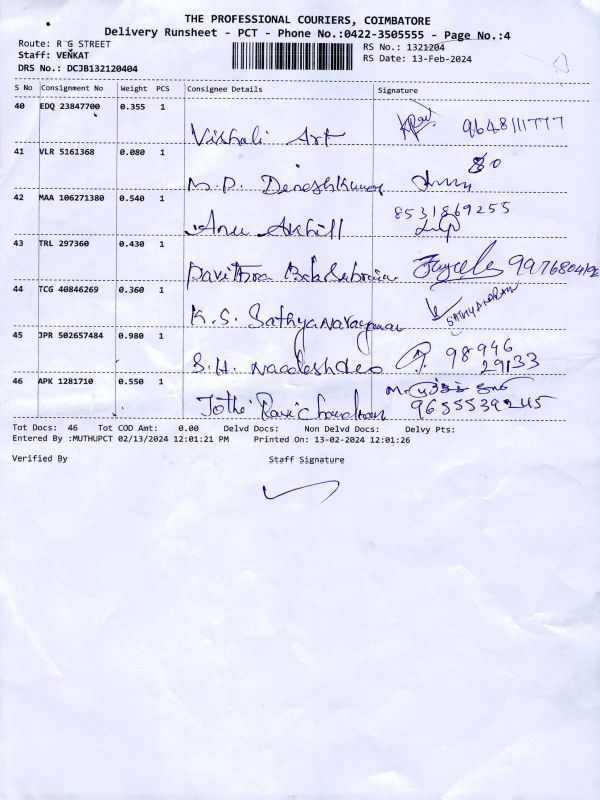 THE PROFESSIONAL COURIERS, COIMBATORE
Delivery Runsheet - PCT - Phone No.:0422-3505555 - Page No.:4
Route: R G STREET
RS No.: 1321204
Staff: VENKAT
RS Date: 13-Feb-2024
DRS No.: DCJB132120404
S No Consignment No Weight PCS Consignee Details Signature
40 EDQ 23847700 0.355 1
Vishali Art 9648111777
41 VLR 5161368 0.080 1
M.P. Deneshkumar
42 MAA 106271380 0.540 1
Anu Akhill 8531869255
43 TRL 297360 0.430 1
Pavithra 
44 TCG 40846269 0.360 1
K.S. Sathyanarayanan SATHYANARAYAN
45 JPR 502657484 0.980 1
S.H. 98946
29133
46 APK 1281710 0.550 1
Jothi Ravichandran 
Tot Docs: 46 Tot COD Amt: 0.00 Delvd Docs: Non Delvd Docs: Delvy Pts:
Entered By :MUTHUPCT 02/13/2024 12:01:21 PM Printed On: 13-02-2024 12:01:26
Verified By Staff Signature